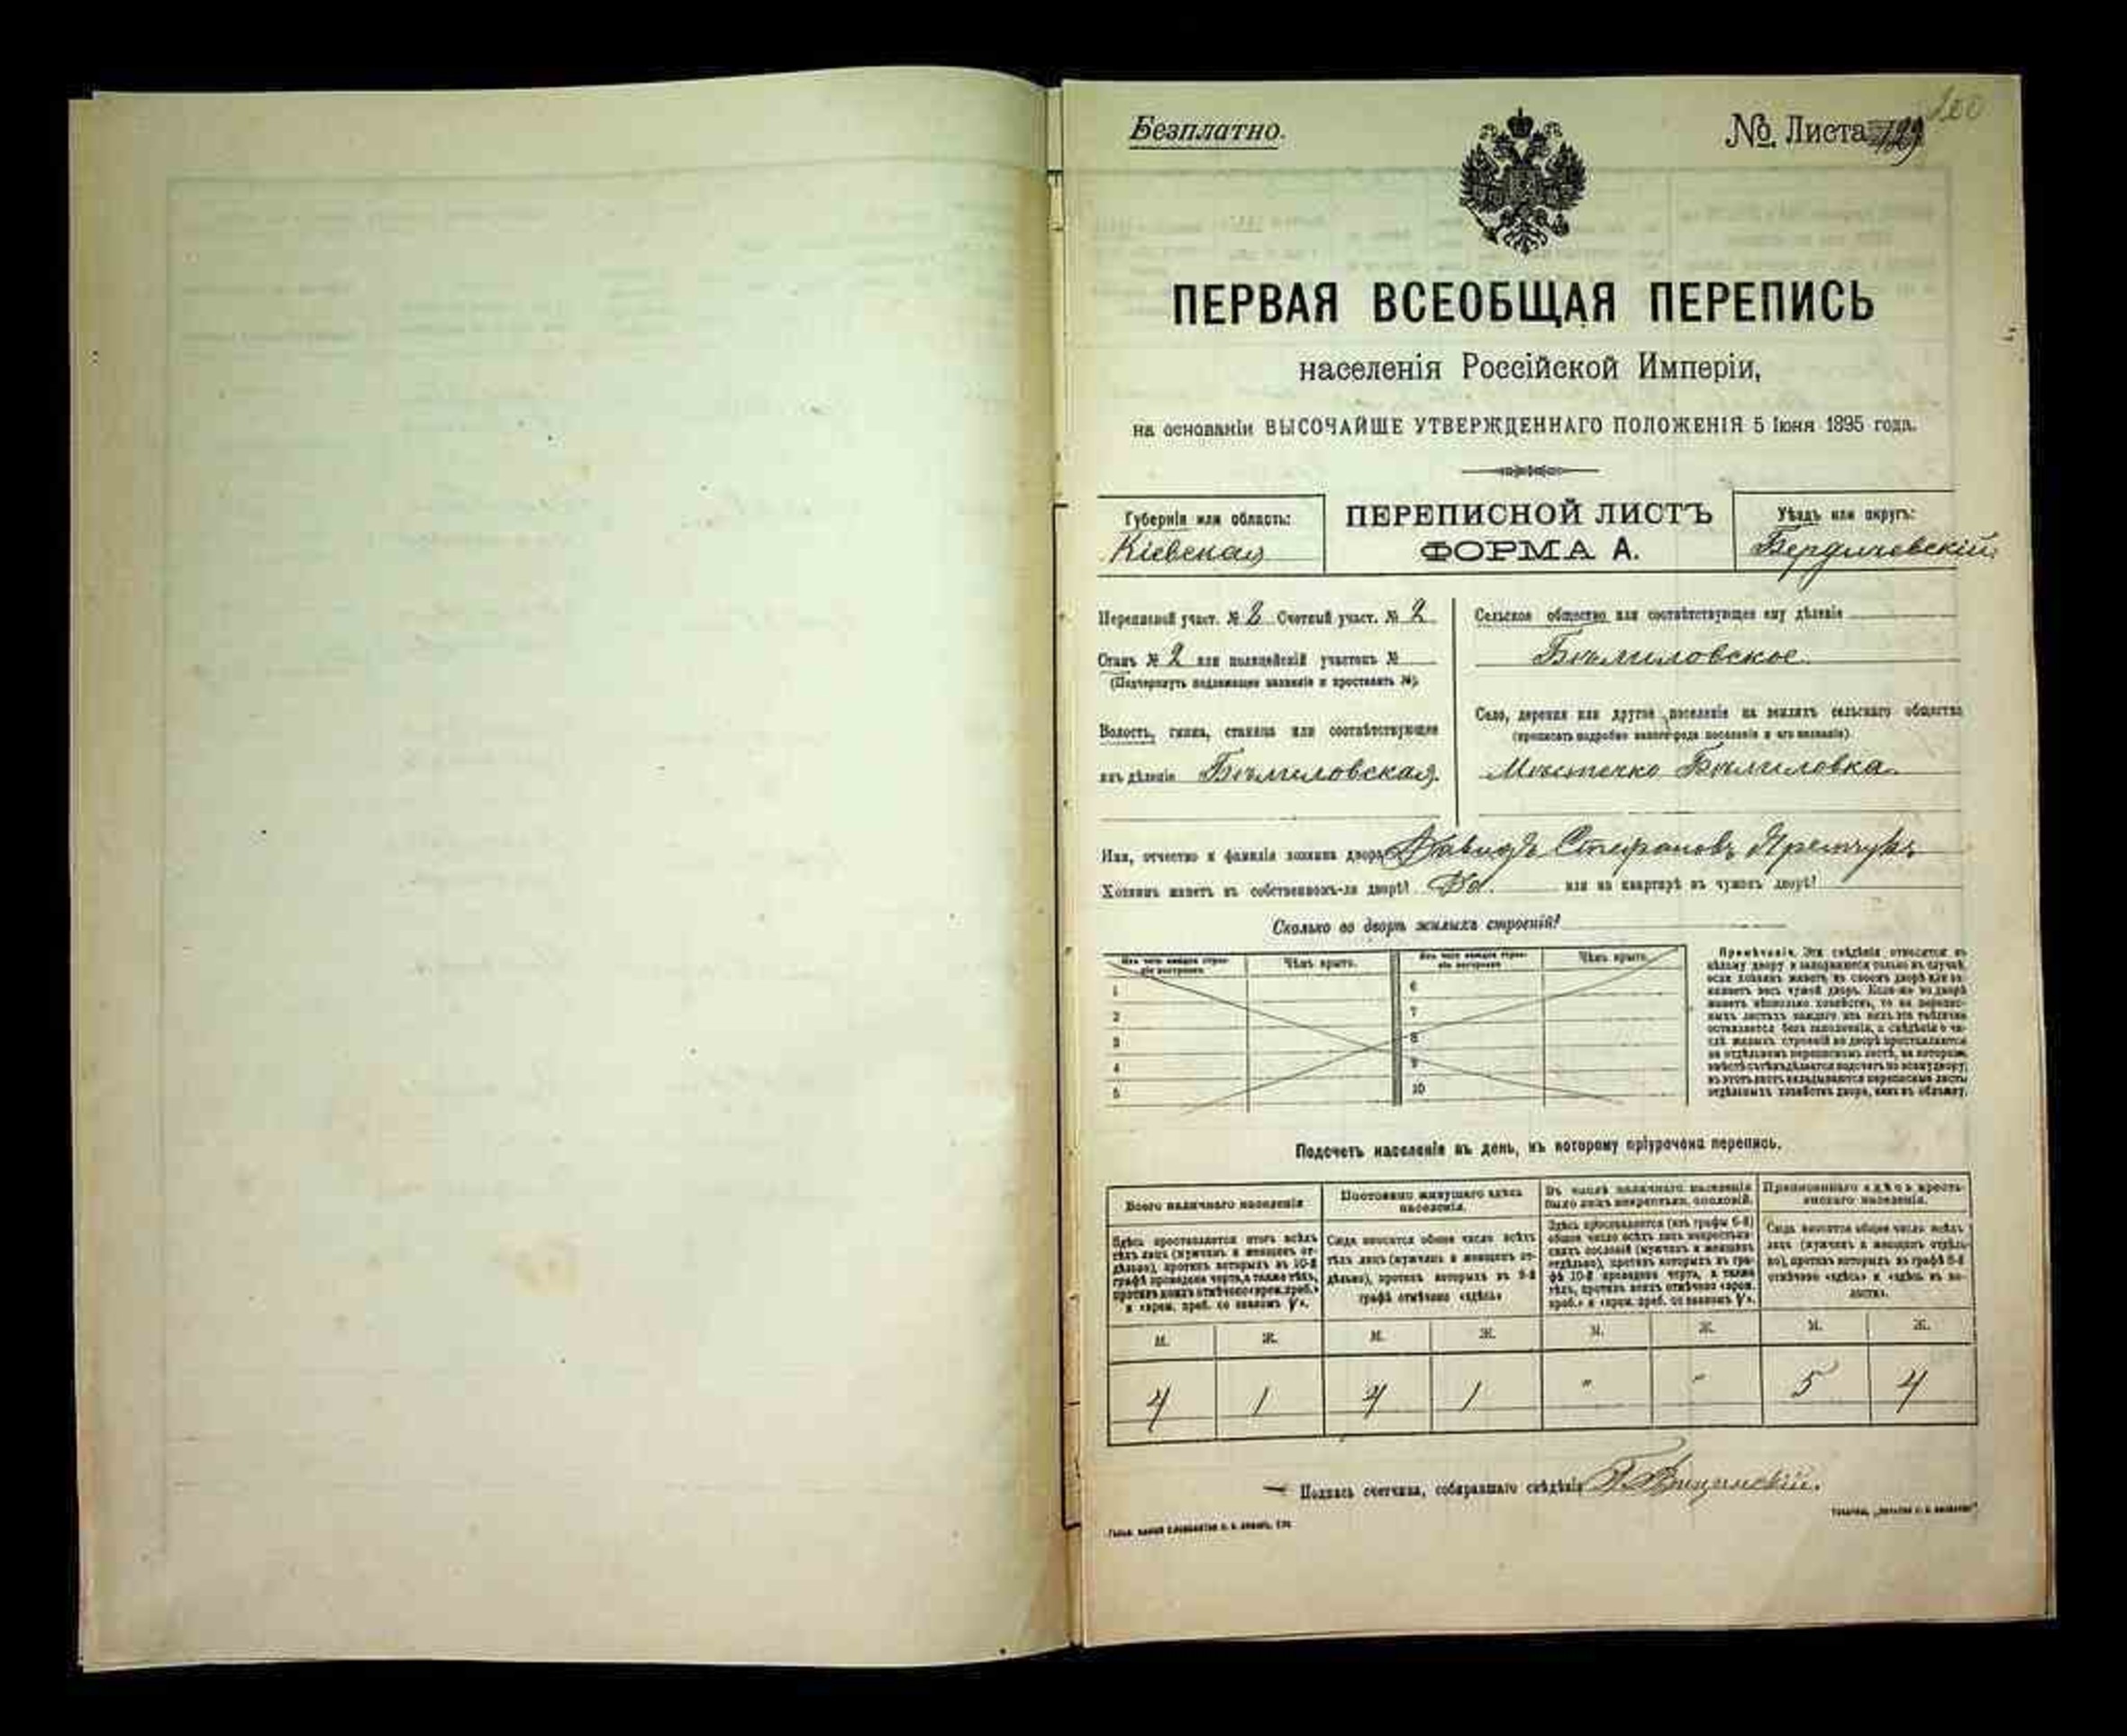 Безплатно.
№ Листа 129
100
ПЕРВАЯ ВСЕОБЩАЯ ПЕРЕПИСЬ
населенія Россійской Имперіи,
на основаніи ВЫСОЧАЙШЕ УТВЕРЖДЕННАГО ПОЛОЖЕНІЯ 5 Іюня 1895 года.
Губернія или область:
Кіевская
ПЕРЕПИСНОЙ ЛИСТЪ
ФОРМА А.
Уѣздъ или округъ:
Бердичевскій
Переписной участ. № 2 Счетный участ. № 2
Станъ № 2 или полицейскій участокъ №
(Подчеркнуть подлежащее названіе и проставить №).
Волость, гмина, станица или соотвѣтствующее
имъ дѣленіе Бѣлиловская.
Сельское общество или соотвѣтствующее ему дѣленіе
Бѣлиловское.
Село, деревня или другое поселеніе на земляхъ сельскаго общества
(прописать подробно какого рода поселеніе и его названіе)
Мѣстечко Бѣлиловка.
Имя, отчество и фамилія хозяина двора Давидъ Стефановъ Яремчукъ
Хозяинъ живетъ въ собственномъ-ли дворѣ? Да. или на квартирѣ въ чужомъ дворѣ?
Сколько во дворѣ жилыхъ строеній?
Изъ чего каждое строеніе построено. Чѣмъ крыто. Изъ чего каждое строеніе построено. Чѣмъ крыто.
1 6
2 7
3 8
4 9
5 10
Примѣчаніе. Эти свѣдѣнія относятся къ
цѣлому двору и заполняются только въ случаѣ,
если хозяинъ живетъ въ своемъ дворѣ или за-
нимаетъ весь чужой дворъ. Если-же во дворѣ
живетъ нѣсколько хозяйствъ, то на перепис-
ныхъ листахъ каждаго изъ нихъ эта табличка
оставляется безъ заполненія, а свѣдѣнія о чи-
слѣ жилыхъ строеній во дворѣ проставляются
на отдѣльномъ переписномъ листѣ, на которомъ
вмѣстѣ съ тѣмъ дѣлается подсчетъ по всему двору;
въ этотъ листъ вкладываются переписные листы
отдѣльныхъ хозяйствъ двора, какъ въ обложку.
Подсчетъ населенія въ день, къ которому пріурочена перепись.
Всего наличнаго населенія
Здѣсь проставляется итогъ всѣхъ
тѣхъ лицъ (мужчинъ и женщинъ от-
дѣльно), противъ которыхъ въ 10-й
графѣ проведена черта, а также тѣхъ,
противъ коихъ отмѣчено «врем. преб.»
и «врем. преб. со знакомъ V».
Постоянно живущаго здѣсь
населенія.
Сюда вносится общее число всѣхъ
тѣхъ лицъ (мужчинъ и женщинъ от-
дѣльно), противъ которыхъ въ 9-й
графѣ отмѣчено «здѣсь»
Въ числѣ наличнаго населенія
было лицъ некрестьян. сословій.
Здѣсь проставляется (изъ графы 6-й)
общее число всѣхъ лицъ некрестьян-
скихъ сословій (мужчинъ и женщинъ
отдѣльно), противъ которыхъ въ гра-
фѣ 10-й проведена черта, а также
тѣхъ, противъ коихъ отмѣчено «врем.
преб.» и «врем. преб. со знакомъ V».
Приписаннаго здѣсь кресть-
янскаго населенія.
Сюда вносится общее число всѣхъ
лицъ (мужчинъ и женщинъ отдѣль-
но), противъ которыхъ въ графѣ 8-й
отмѣчено «здѣсь» и «здѣсь въ во-
лости».
М. Ж. М. Ж. М. Ж. М. Ж.
4 1 4 1 " " 5 4
Подпись счетчика, собиравшаго свѣдѣнія